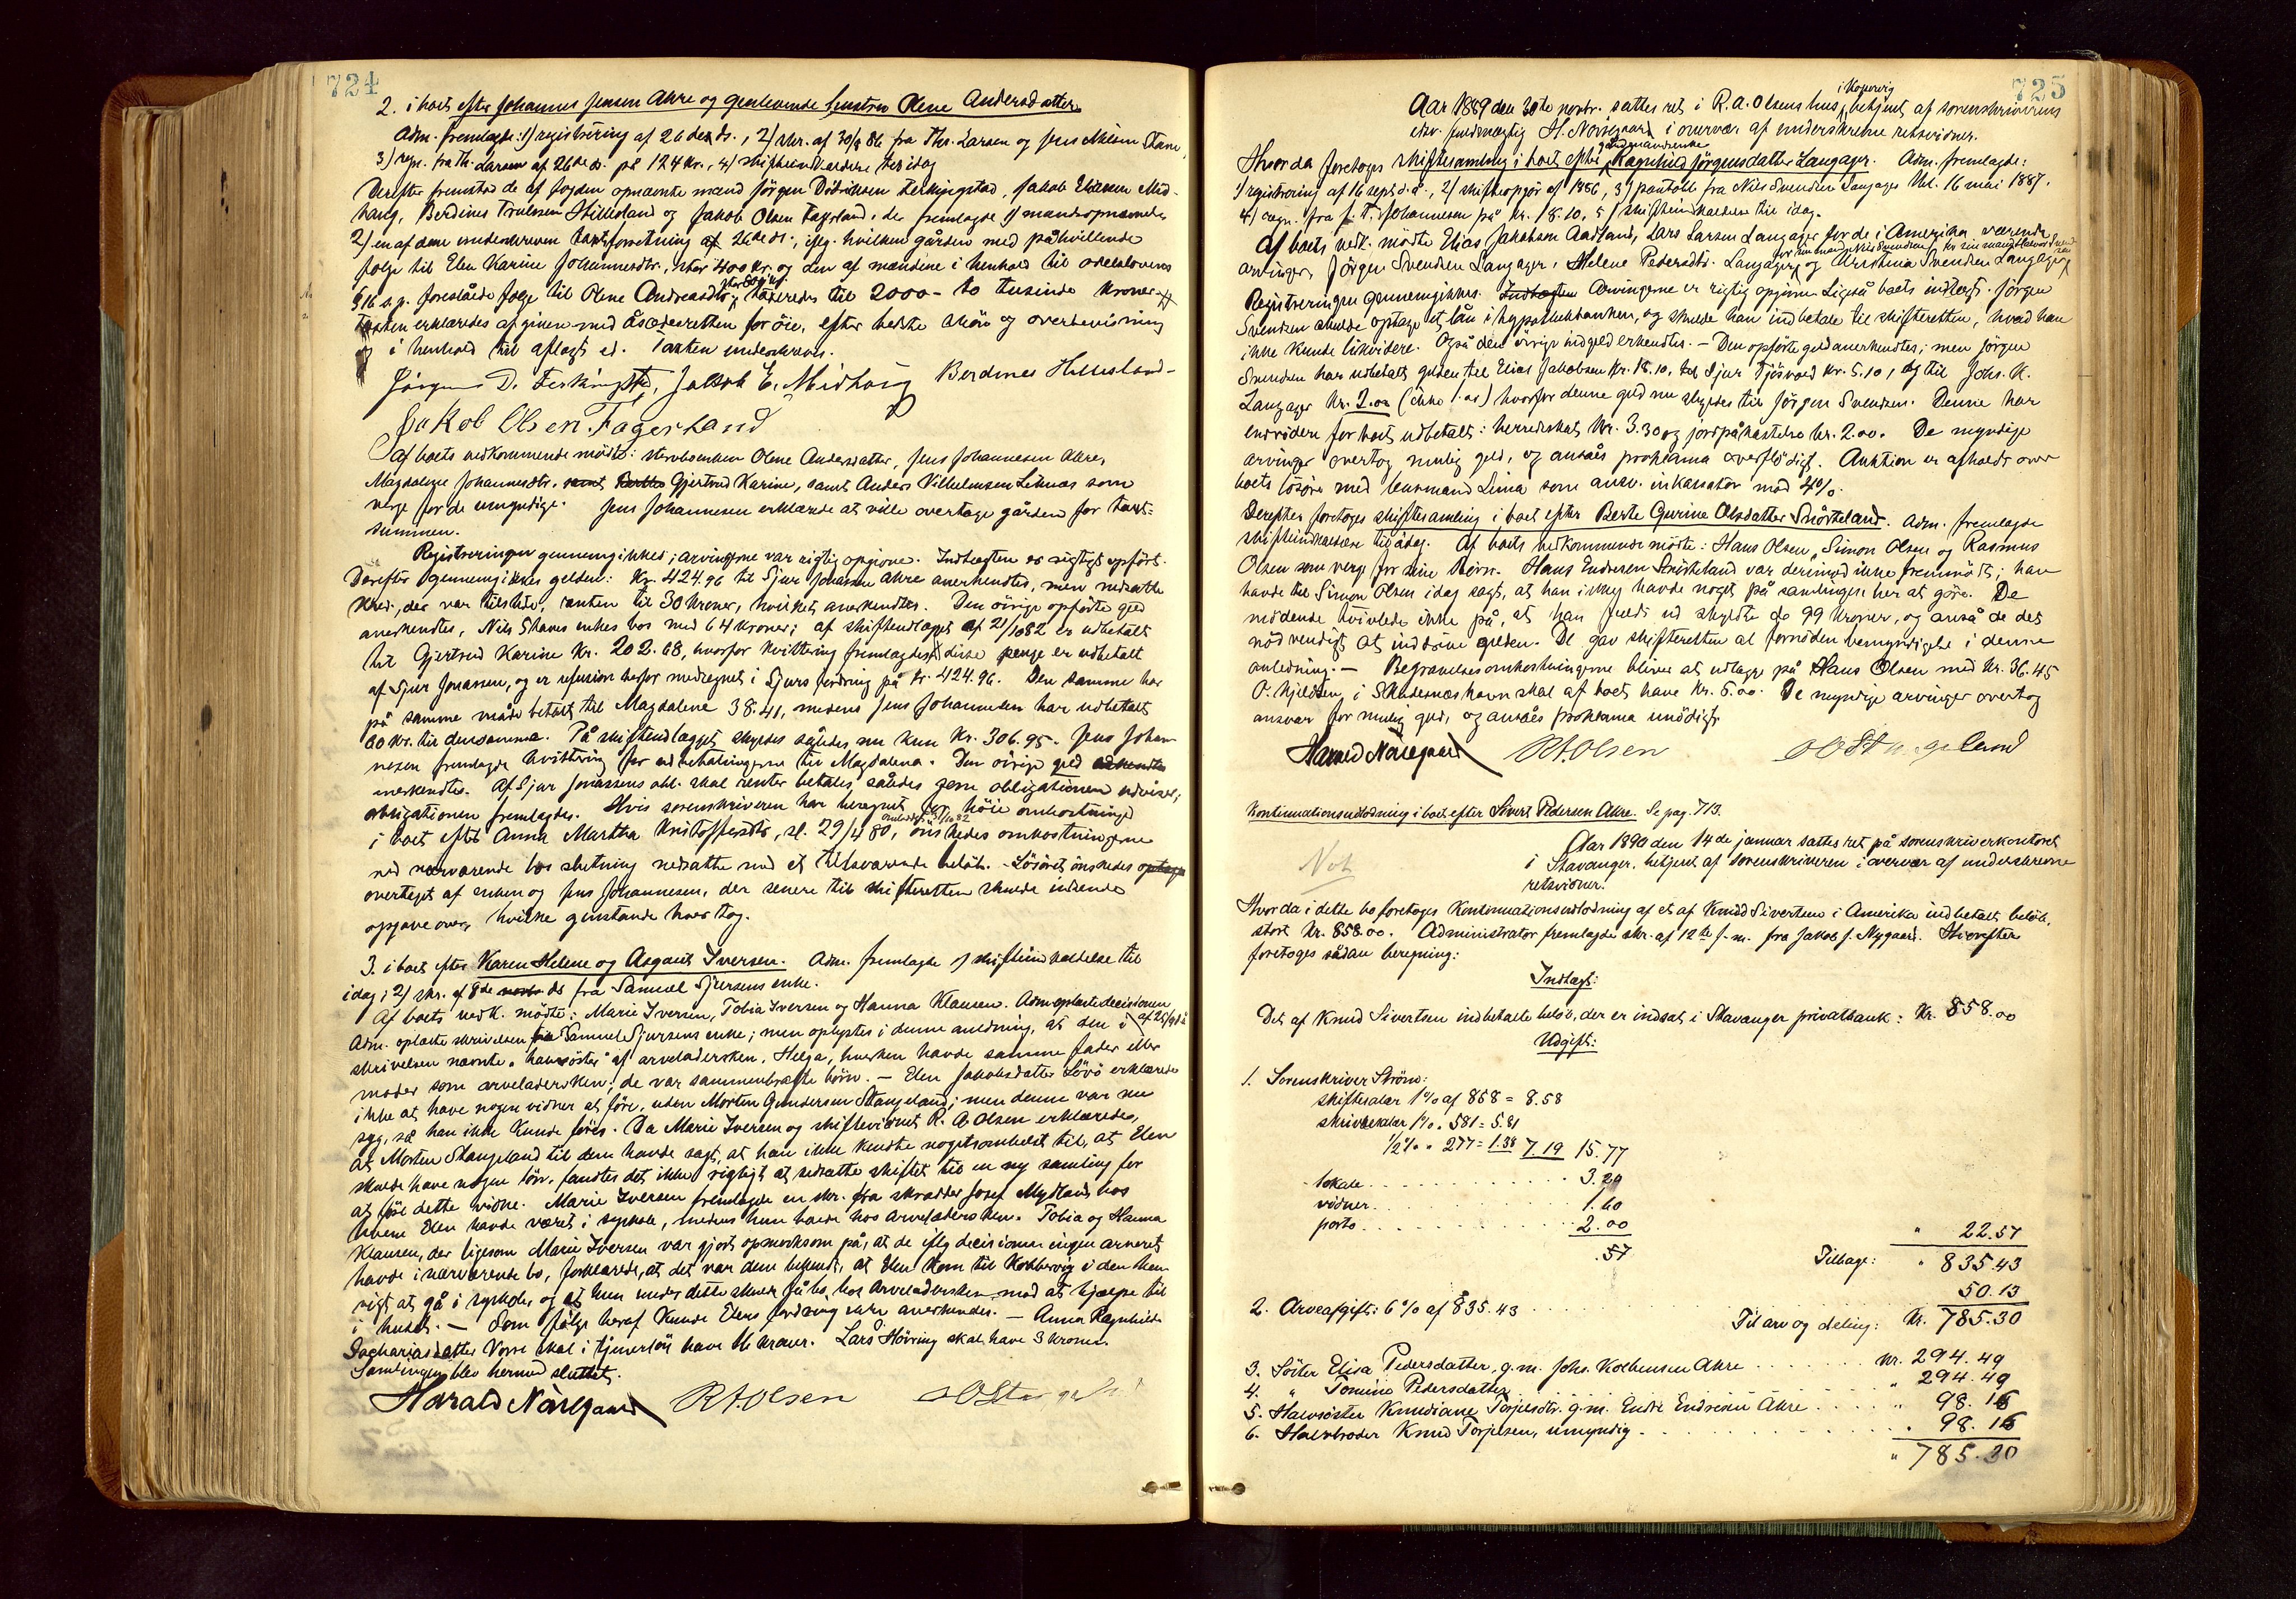 724
2. i boet efter Johannes Jensen Ahre og genlevende hustru Olene Andersdatter.
Adm. fremlagde: 1) registrering af 26 ds., 2) skr. af 30/9 86 fra Ths. Larsen og Jens Nilsen Stave,
3) regn. fra Th. Larsen af 26de ds. på 124 kr., 4) skifteindkaldelse til idag
Derefter fremstod de af fogden opnævnte mænd Jörgen Didriksen Ferkingstad, Jakob Eliassen Mid-
haug, Berdines Trulssen Hillesland og Jakob Olsen Fagerland, der fremlagde 1) mandsopnævnelse
2) en af dem underskreven taxtforretning af 26de ds., iflg. hvilken gården med påhvilende
folge til Elen Karine Johannesdtr., stor 400 kr. og den af mændene i henhold til odelslovens
§ 16 a.p. foreslåede folge til Olene Andreasdtr., stor 800 kr., taxeredes til 2000 - to tusinde kroner.
Taxten erklæredes afgiven med åsædesretten for öie, efter bedste skjön og overbevisning
og i henhold til aflagt ed. Taxten underskreves.
Jörgen D. Ferkingstad, Jakob E. Midhaug Berdines Hillesland
Jakob Olsen Fagerland
Af boets vedkommende mödte: stervboenken Olene Andersdatter, Jens Johannesen Ahre,
Magdalene Johannesdtr. samt Gjertrud Karine, samt Anders Vilhelmsen Liknes som
verge for de umyndige. Jens Johannesen erklærede at ville overtage gården for taxt-
summen.
Registreringen gennemgikkes; arvingerne var rigtig opgivne. Indtægten er rigtigt opfört.
Derefter gennemgikkes gelden: Kr. 424.96 til Sjur Jonassen Ahre anerkendtes, men nedsatte
kred., der var tilstede, renten til 30 kroner, hvilket anerkendtes. Den övrige opförte geld
anerkendtes, Nils Staves enkes bos med 64 kroner; af skifteudlægget af 21/10 82 er udbetalt
til Gjertrud Karine kr. 202.68, hvorfor kvittering fremlagdes; disse penge er udbetalt
af Sjur Jonassen, og er refusion herfor medregnet i Sjurs fordring på kr. 424.96. Den samme har
på samme måde betalt til Magdalene 38.41, medens Jens Johannesen har udbetalt
60 kr. til densamme. På skifteudlægget skyldes således nu kun kr. 306.95. Jens Johan-
nesen fremlagde kvittering for udbetalingerne til Magdalena. Den övrige geld
anerkendtes. Af Sjur Jonassens obl. skal renter betales, således som obligationen udviser;
obligationen fremlagdes. Hvis sorenskriveren har beregnet for höie omkostninger
i boet efter Anna Martha Kristoffersdtr., sl. 29/4 80, önskedes omkostningerne
ved nærværende bos slutning nedsatte med et tilsvarende belöb. - Lösöret önskedes
overtaget af enken og Jens Johannesen, der senere til skifteretten skulde indsende
opgave over, hvilke genstande hver tog.
3. i boet efter Karen Helene og Asgaut Iversen. Adm. fremlagde 1) skifteindkaldelse til
idag; 2) skr. af 8de ds fra Samuel Sjursens enke.
Af boets vedk. mödte: Marie Iversen, Tobia Iversen og Hanna Klausen. Adm. oplæste decisionen af 25/9 d.å.
Adm. oplæste skrivelsen fra Samuel Sjursens enke; men oplystes i denne anledning, at den i
skrivelsen nævnte "halvsöster" af arveladersken, Helga, hverken havde samme fader eller
moder som arveladersken; de var sammenbragte börn. - Elen Jakobsdatter Lövö erklærede
ikke at have nogen vidner at före, uden Morten Gundersen Stangeland; men denne var nu
syg, så han ikke kunde föres. Da Marie Iversen og skiftevidnet R. A. Olsen erklærede,
at Morten Stangeland til dem havde sagt, at han ikke kendte nogetsomhelst til, at Elen
skulde have nogen lön, fandtes det ikke rigtigt at udsætte skiftet til en ny samling for
at före dette vidne. Marie Iversen fremlagde en skr. fra skrædder Josef Mydland, hos
hvem Elen havde været i syskole, medens hun boede hos arveladersken. Tobia og Hanna
Klausen, der ligesom Marie Iversen var gjort opmerksom på, at de iflg decisionen ingen arveret
havde i nærværende bo, forklarede, at det var dem bekendt, at Elen kom til Kobbervig i den hen-
sigt at gå i syskole, og at hun under dette skulde få bo hos arveladersken mod at hjælpe til
i huset. - Som fölge heraf kunde Elens fordring ikke anerkendes. - Anna Ragnhilde
Sachariasdatter Vorre skal i tjenerlön have 16 kroner. Lars Hövring skal have 3 kroner.
Samlingen blev hermed sluttet.
Harald Nörregaard R.A. Olsen
725
Aar 1889 den 30te novbr. sattes ret i R. A. Olsens hus i Kopervig, betjent af sorenskriverens
edsv. fuldmægtig H. Nörregaard i overvær af underskrevne retsvidner.
Hvorda foretoges skiftesamling i boet efter gårdmandsenke Ragnhild Jörgensdatter Langager. Adm. fremlagde:
1) registrering af 16 septbr. d.å., 2) skifteopgjör af 1886, 3) pantobl. fra Nils Svendsen Langager thl. 16 mai 1887,
4) regn. fra J. T. Johannesen på kr. 18.10, 5) skifteindkaldelse til idag.
Af boets vedk. mödte Elias Jakobsen Aadland, Lars Larsen Langager for de i Amerika værende
arvinger, Jörgen Svendsen Langager, Helene Pedersdtr. Langager for sin mand Nils Svendsen og Kristina Svendsen Langager
Registreringen gennemgikkes. Arvingerne er rigtig opgivne. Ligeså boets indtægt. Jörgen
Svendsen skulde optage et lån i hypothekbanken, og skulde han indbetale til skifteretten, hvad han
ikke kunde likvidere. Også den övrige indgeld erkendtes. - Den opförte geld anerkendtes; men Jörgen
Svendsen har udbetalt gelden til Elias Jakobsen kr. 18.10, til Sjur Tjösvold kr. 5.10, og til Johs. K.
Langager kr. 2.00 (ikke 1.00) hvorfor denne geld nu skyldes til Jörgen Svendsen. Denne har
endvidere for boet udbetalt: herredsskat kr. 3.30 og jordpåkastelse kr. 2.00. De myndige
arvinger overtog mulig geld, og ansåes proklama overflödigt. Auktion er afholdt over
boets lösöre med lensmand Lima som ansv. inkassator mod 4%.
Derefter foretoges skiftesamling i boet efter Berte Gurine Olsdatter Snörteland. Adm. fremlagde
skifteindkaldelse til idag. Af boets vedkommende mödte: Hans Olsen, Simon Olsen og Rasmus
Olsen som verge for sine börn. Hans Endresen Snörteland var derimod ikke fremmödt; han
havde til Simon Olsen idag sagt, at han ikke havde noget på samlingen her at göre. De
mödende tvivlede ikke på, at han fuldt ud skyldte de 99 kroner, og ansså de det
nödvendigt at inddrive gelden. De gav skifteretten al fornöden bemyndigelse i denne
anledning. - Begravelsesomkostningerne bliver at udlægge på Hans Olsen med kr. 36.45
O. Kjeldsen i Skudesneshavn skal af boet have kr. 6.00. De myndige arvinger overtog
ansvar for mulig geld, og ansåes proklama unödigt.
Harald Nörregaard R.A. Olsen
Kontinuationsudlodning i boet efter Sivert Pedersen Ahre. Se pag. 713.
Aar 1890 den 14de januar sattes ret på sorenskriverkontoret
i Stavanger, betjent af sorenskriveren i overvær af underskrevne
retsvidner.
Not
Hvorda i dette bo foretoges kontinuationsudlodning af et af Knud Sivertsen i Amerika indbetalt belöb,
stort kr. 858.00. Administrator fremlagde skr. af 12te f.m. fra Jakob J. Nygaard. Hierefter
foretoges sådan beregning:
Indtægt:
Det af Knud Sivertsen indbetalte belöb, der er indsat i Stavanger privatbank: Kr. 858.00
Udgift:
1. Sorenskriver Ström:
skiftesalær 1% af 858 = 8.58
skrivesalær 1% . 581 = 5.81
1/2% . 277 = 1.38 7.19 15.77
lokale . . . 3.20
vidner . . . 1.60
porto . . . 2.00
" 22.57
.57
Tilbage: " 835.43
2. Arveafgift: 6% af 835.43 . . . 50.13
Til arv og deling: Kr. 785.30
3. Söster Elisa Pedersdatter, g.m. Johs. Kolbensen Ahre . . . kr. 294.49
4. " Tomine Pedersdatter . . . " 294.49
5. Halvsöster Knudiane Torjesdtr. g.m. Endre Endresen Ahre . . . " 98.16
6. Halvbroder Knud Torjesen, umyndig . . . " 98.16
" 785.30